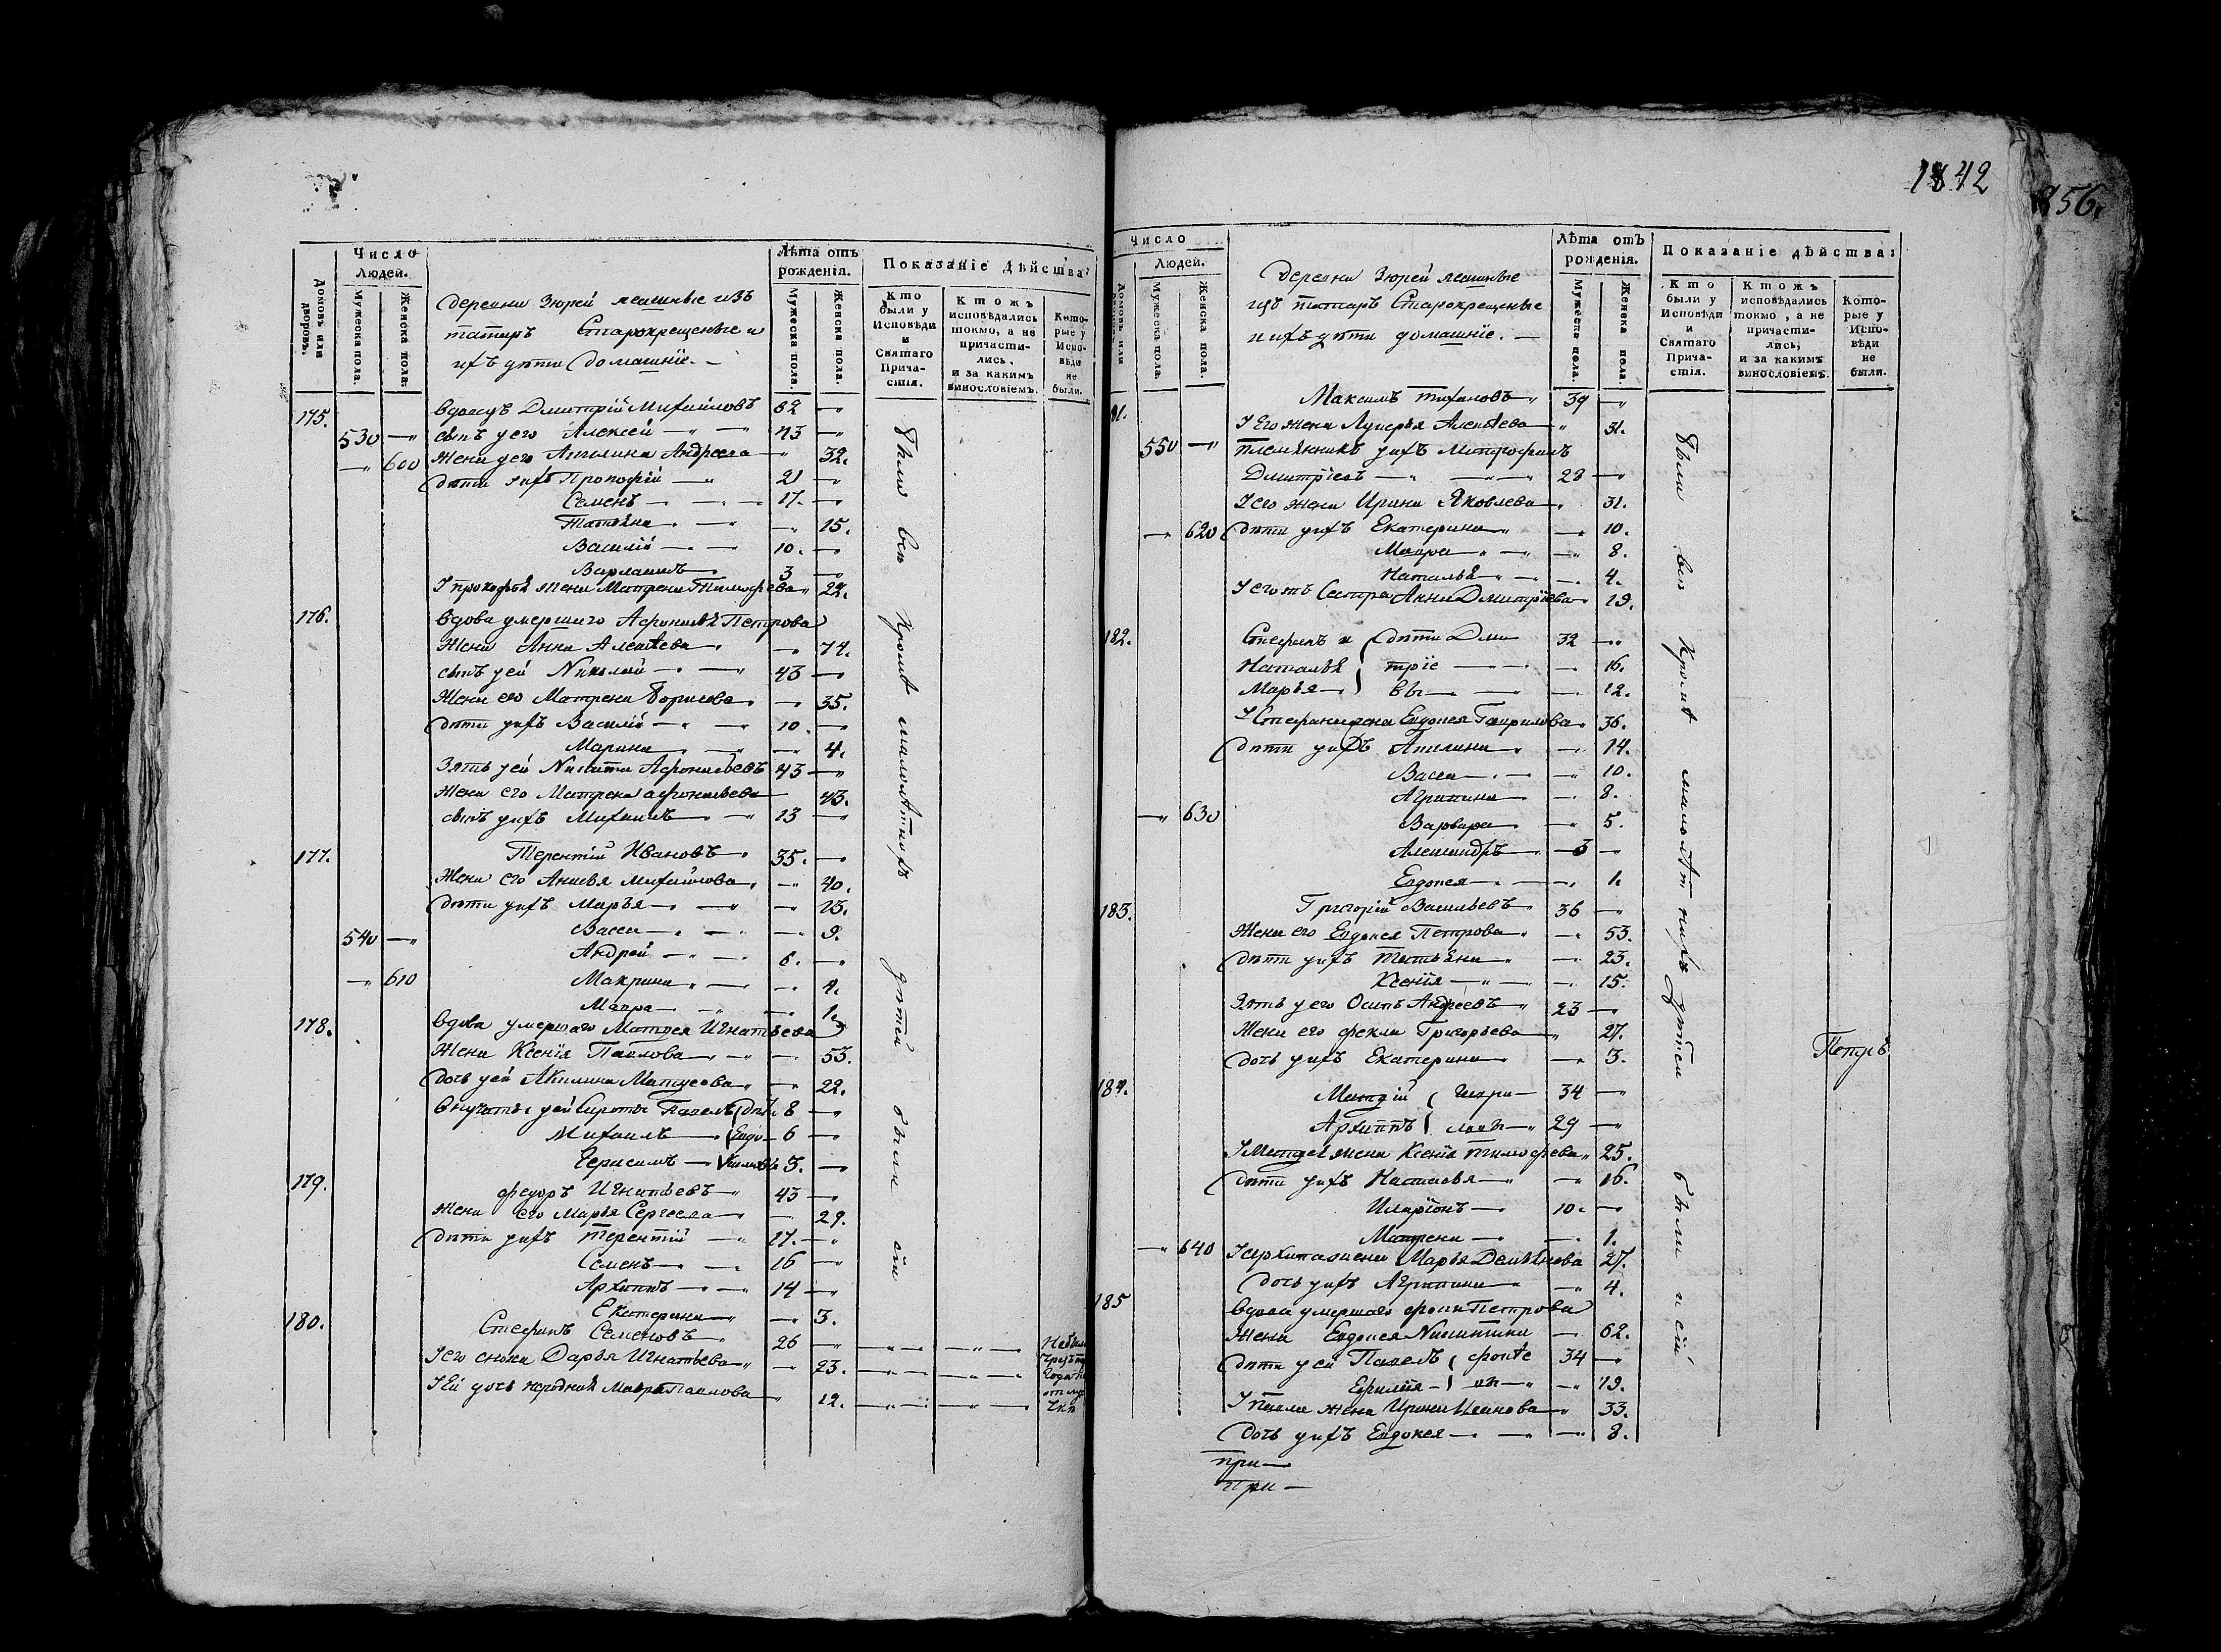 Число
Людей.
Домовъ или дворовъ.
Мужеска пола.
Женска пола.
деревни Зюрей ясашные изъ
татаръ Старокрещеные и
ихъ дѣти домашніе. —
Лѣта отъ рожденія.
Мужеска пола.
Женска пола.
Показаніе дѣйства:
Кто были у Исповѣди и Святаго Причастія.
Ктожъ исповѣдались токмо, а не причастились, и за какимъ винословіемъ.
Которые у Исповѣди не были.
175. вдовецъ Дмитрій Михайловъ 62 —
530 — сынъ у его Алексей — 43 —
— 600 Жена его Акилина Андреева — 32.
дѣти у ихъ Прокофій — 21 —
Семенъ — 17. —
Татьяна — — 15.
Василій — 10. —
Варламъ — 3 —
І прокофья жена Матрена Тимофеева 22.
176. вдова умершаго Афонасья Петрова
Жена Анна Алексѣева — 74.
сынъ у ей Николай — 43 —
Жена его Матрена Борисова — 35.
дѣти у ихъ Василій — 10. —
Марина — — 4.
Зять у ей Никита Афонасьевъ 43 —
Жена его Матрена афонасьева 43.
сынъ у ихъ Михаилъ — 13 —
177. Терентій Ивановъ 35. —
Жена его Анисья Михайлова — 40.
дѣти у ихъ Марья — — 13.
540 — Васса — — 9.
Андрей — 6. —
— 610 Макрина — — 4.
Мавра — — 1.
178. вдова умершаго Матвея Игнатьева
Жена Ксенія Павлова — — 53.
дочь у ей Акилина Матвеева — 22.
внучаты у ей Сироты Павелъ дѣти 8 —
Михаилъ — Евдо- 6 —
Герасимъ — кимовы 3. —
179. федоръ Игнатьевъ 43 —
Жена его Марья Сергеева — 29.
дѣти у ихъ терентій — 17. —
Семенъ — 16 —
Архипъ — 14 —
Екатерина — 3.
180. Стефанъ Семеновъ 26 —
І его сноха Дарья Игнатьева — 23.
І Ей дочь Мавра Павлова 12.
Были всѣ кромѣ малолѣтныхъ дѣтей были сіи
1842
956.
Число
Людей.
Домовъ или
Мужеска пола.
Женска пола.
Деревни Зюрей ясашные
изъ татаръ Старокрещеные
и ихъ дѣти домашніе. —
Лѣта отъ рожденія.
Мужеска пола.
Женска пола.
Показаніе дѣйства:
Кто были у Исповѣди и Святаго Причастія.
Ктожъ исповѣдались токмо, а не причастились, и за какимъ винословіемъ.
Которые у Исповѣди не были.
81. Максимъ тихановъ 39 —
І Его жена Лукерья Алексѣева 31.
550 — племянникъ у ихъ Митрофанъ
Дмитріевъ — 28 —
І его жена Ирина Яковлева 31.
— 620 дѣти у ихъ Екатерина — 10.
Мавра — — 8.
Наталья — — 4.
І его жъ Сестра Анна Дмитріева 19.
182. Стефанъ и дѣти Дми 32 —
Наталья тріе — — 16.
Марья — вы — — 12.
І Стефана жена Евдокея Гаврилова 36.
дѣти у ихъ Акилина — 14.
Васса — — 10.
Агрипина — 8.
— 630 Варвара — 5.
Александръ — 3 —
Евдокея — — 1.
183. Григорій Васильевъ 36 —
Жена его Евдокея Петрова — 53.
дѣти у ихъ Татьяна — 23.
Ксенія — — 15.
Зять у его Осипъ Андреевъ 23 —
Жена его фекла Григорьева 27.
дочь у ихъ Екатерина — 3.
Петръ
184. Матвій 34 —
Архиппъ 29 —
І Матвея жена Ксенія тимофеева 25.
дѣти у ихъ Настасья — 16.
Иларіонъ — 10. —
Матрена — — 1.
— 640 І архипа жена Марья Демьянова 27.
дочь у ихъ Агрипина — 4.
185 вдова умершаго фоки Петрова
Жена Евдокея Никитина — 62.
дѣти у ей Павелъ фокѣе 34 —
19.
І павла жена Ирина Иванова 33.
дочь у ихъ Евдокея — — 8.
при —
при —
Были всѣ кромѣ малолѣтныхъ дѣтей были и сіи